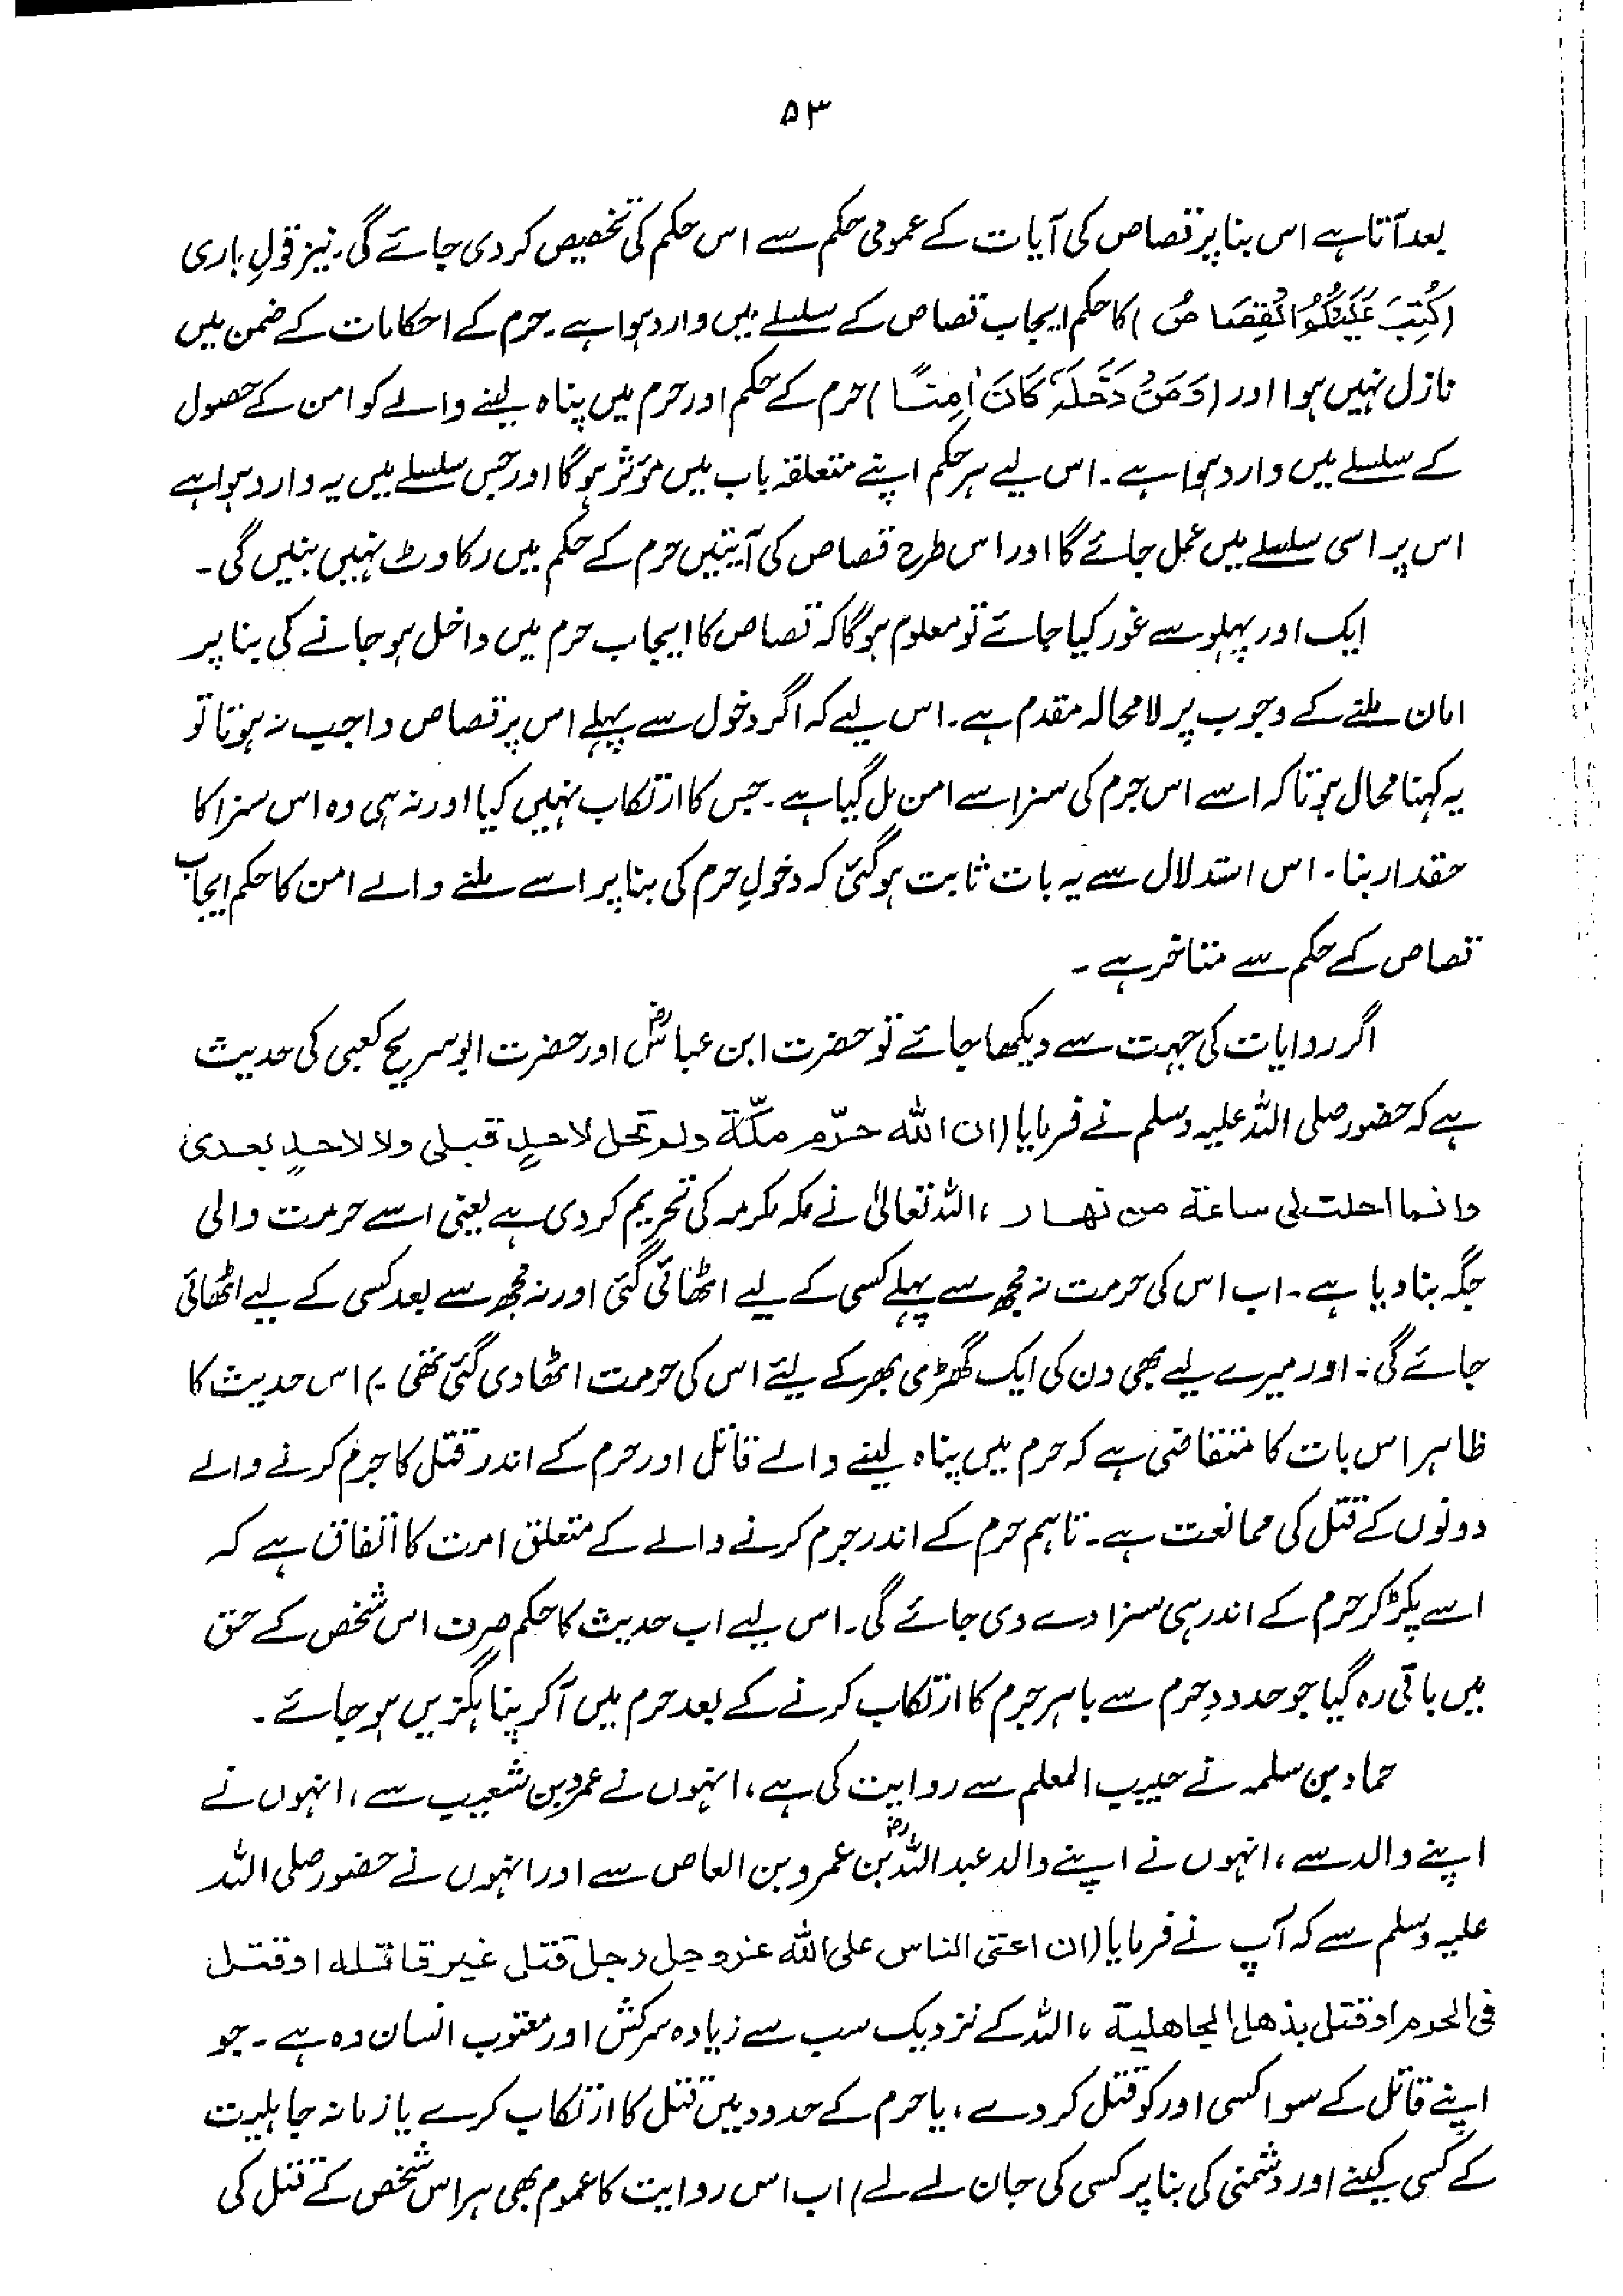 ۵۳
بعد آتا ہے اس بنا پر قصاص کی آیات کے عمومی حکم سے اس حکم کی تخصیص کر دی جائے گی۔ نیز قولِ باری
(کُتِبَ عَلَیْکُمُ الْقِصَاصُ) کا حکم ایجاب قصاص کے سلسلے میں وارد ہوا ہے۔ حرم کے احکامات کے ضمن میں
نازل نہیں ہوا اور (وَمَنْ دَخَلَهٗ كَانَ اٰمِنًا) حرم کے حکم اور حرم میں پناہ لینے والے کو امن کے حصول
کے سلسلے میں وارد ہوا ہے۔ اس لیے ہر حکم اپنے متعلقہ باب میں مؤثر ہوگا اور جس سلسلے میں یہ وارد ہوا ہے
اس پر اسی سلسلے میں عمل جائے گا اور اس طرح قصاص کی آیتیں حرم کے حکم میں رکاوٹ نہیں بنیں گی۔
ایک اور پہلو سے غور کیا جائے تو معلوم ہوگا کہ قصاص کا ایجاب حرم میں داخل ہو جانے کی بنا پر
امان ملنے کے وجوب پر لا محالہ مقدم ہے۔ اس لیے کہ اگر دخول سے پہلے اس پر قصاص واجب نہ ہوتا تو
یہ کہنا محال ہوتا کہ اسے اس جرم کی سزا سے امن مل گیا ہے۔ جس کا ارتکاب نہیں کیا اور نہ ہی وہ اس سزا کا
حقدار بنا۔ اس استدلال سے یہ بات ثابت ہوگئی کہ دخولِ حرم کی بنا پر اسے ملنے والے امن کا حکم ایجاب
قصاص کے حکم سے متاخر ہے۔
اگر روایات کی جہت سے دیکھا جائے تو حضرت ابن عباسؓ اور حضرت ابو سریح کعبی کی حدیث
ہے کہ حضور صلی اللہ علیہ وسلم نے فرمایا (ان الله حرّم مكّة ولم تحل لاحدٍ قبلى ولا لاحدٍ بعدى
وانما احلت لى ساعة من نهار، اللہ تعالیٰ نے مکہ مکرمہ کی تحریم کر دی ہے یعنی اسے حرمت والی
جگہ بنا دیا ہے۔ اب اس کی حرمت نہ مجھ سے پہلے کسی کے لیے اٹھائی گئی اور نہ مجھ سے بعد کسی کے لیے اٹھائی
جائے گی۔ اور میرے لیے بھی دن کی ایک گھڑی بھر کے لیئے اس کی حرمت اٹھا دی گئی تھی۔) اس حدیث کا
ظاہر اس بات کا متقاضی ہے کہ حرم میں پناہ لینے والے قاتل اور حرم کے اندر قتل کا جرم کرنے والے
دونوں کے قتل کی ممانعت ہے۔ تاہم حرم کے اندر جرم کرنے والے کے متعلق امت کا اتفاق ہے کہ
اسے پکڑ کر حرم کے اندر ہی سزا دے دی جائے گی۔ اس لیے اب حدیث کا حکم صرف اس شخص کے حق
میں باقی رہ گیا جو حدودِ حرم سے باہر جرم کا ارتکاب کرنے کے بعد حرم میں آکر پناہ گزیں ہو جائے۔
حماد بن سلمہ نے حبیب المعلم سے روایت کی ہے، انہوں نے عمرو بن شعیب سے، انہوں نے
اپنے والد سے، انہوں نے اپنے والد عبد اللہؓ بن عمرو بن العاص سے اور انہوں نے حضور صلی اللہ
علیہ وسلم سے کہ آپ نے فرمایا (ان اعتى الناس على الله عزوجل رجل قتل غير قاتله او قتل
فى الحرم او قتل بذحل الجاهلية، اللہ کے نزدیک سب سے زیادہ سرکش اور معتوب انسان وہ ہے۔ جو
اپنے قاتل کے سوا کسی اور کو قتل کر دے، یا حرم کے حدود میں قتل کا ارتکاب کرے یا زمانہ جاہلیت
کے کسی کینے اور دشمنی کی بنا پر کسی کی جان لے لے) اب اس روایت کا عموم بھی ہر اس شخص کے قتل کی